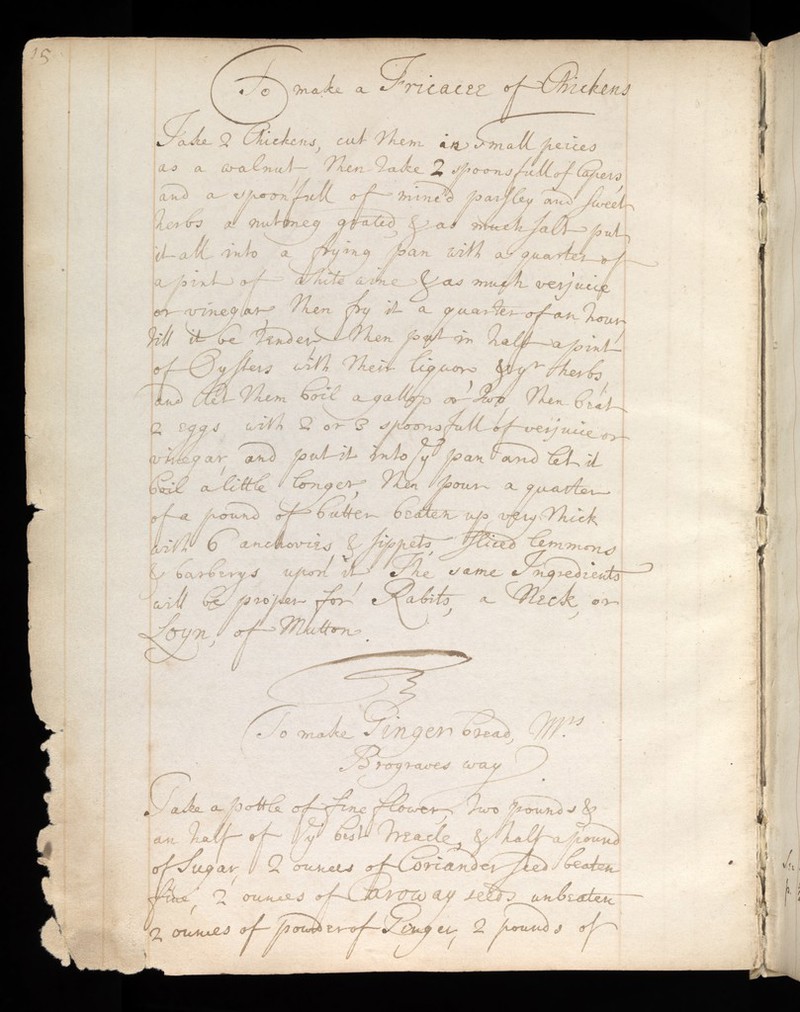 15
To make a Fricacee of Chickens
Take 2 Chickens, cut them in small peices
as a walnut Then take 2 spoonsfull of Capers
and a spoonfull of minc'd parsley and sweet
herbs a nutmeg grated, & as much salt put
it all into a frying pan with a quarter of
a pint of white wine & as much verjuice
or vinegar, Then fry it a quarter of an hour
till it be tender Then put in half a pint
of Oysters with their liquor & yr herbs,
and let them boil a gallop or two Then beat
2 eggs with 2 or 3 spoonsfull of verjuice or
vinegar, and put it into ye pan and let it
boil a little longer, Then pour a quarter
of a pound of butter beaten up very thick
with 6 anchovies & sippets, sliced lemmons
& barberys upon it The same Ingredients
will be proper for Rabits, a Neck, or
Loyn, of Mutton.
To make Ginger bread, Mrs.
Brograves way
Take a pottle of fine flower, two pounds &
an half of ye best Treacle, & half a pound
of Sugar, 2 ounces of Coriander seed beaten
fine, 2 ounces of Caroway seeds unbeaten
2 ounces of powder of Ginger, 2 pounds of